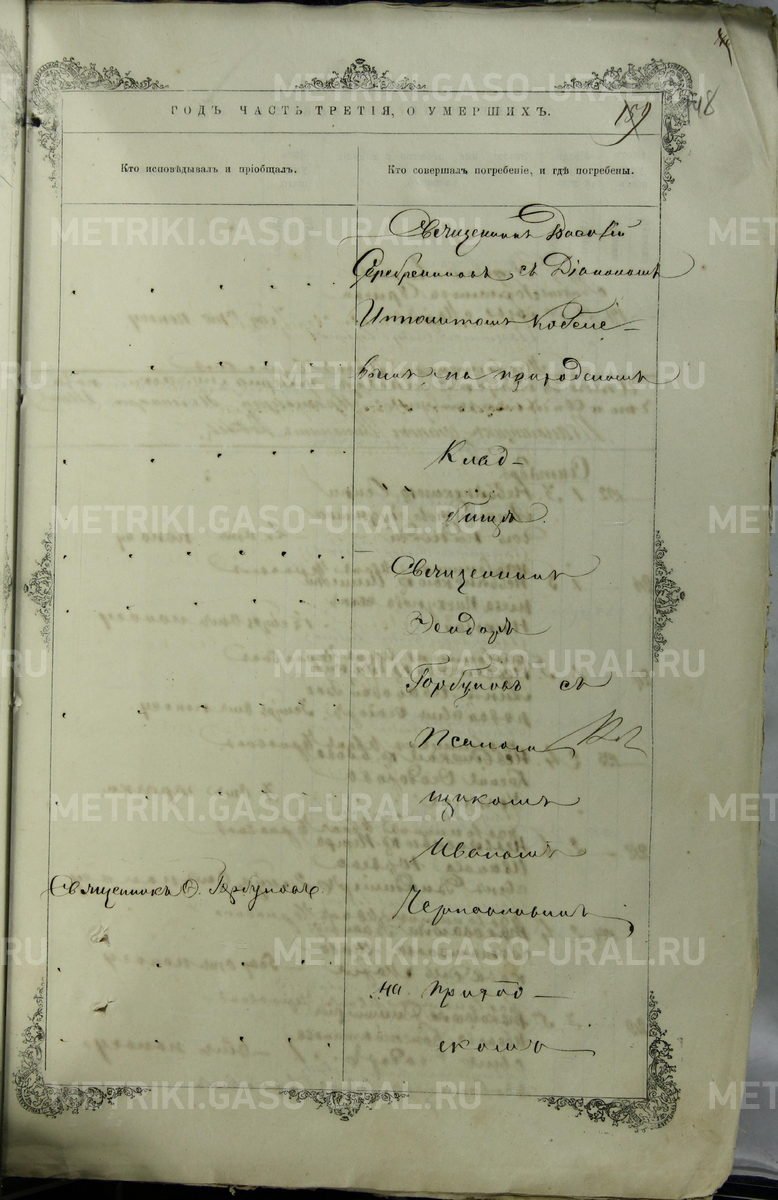 ГОДЪ ЧАСТЬ ТРЕТІЯ, О УМЕРШИХЪ.
159
Кто исповѣдывалъ и пріобщалъ.
Кто совершалъ погребеніе, и гдѣ погребены.
Священникъ Василій
Серебренниковъ съ Діакономъ
Ипполитомъ Кобеле-
вымъ на приходскомъ
Клад-
бищѣ.
Священникъ
Ѳеодоръ
Горбуновъ съ
Псалом
щикомъ
Иваномъ
Священникъ Ѳ. Горбуновъ.
Чернавинымъ
на приход-
скомъ
METRIKI.GASO-URAL.RU